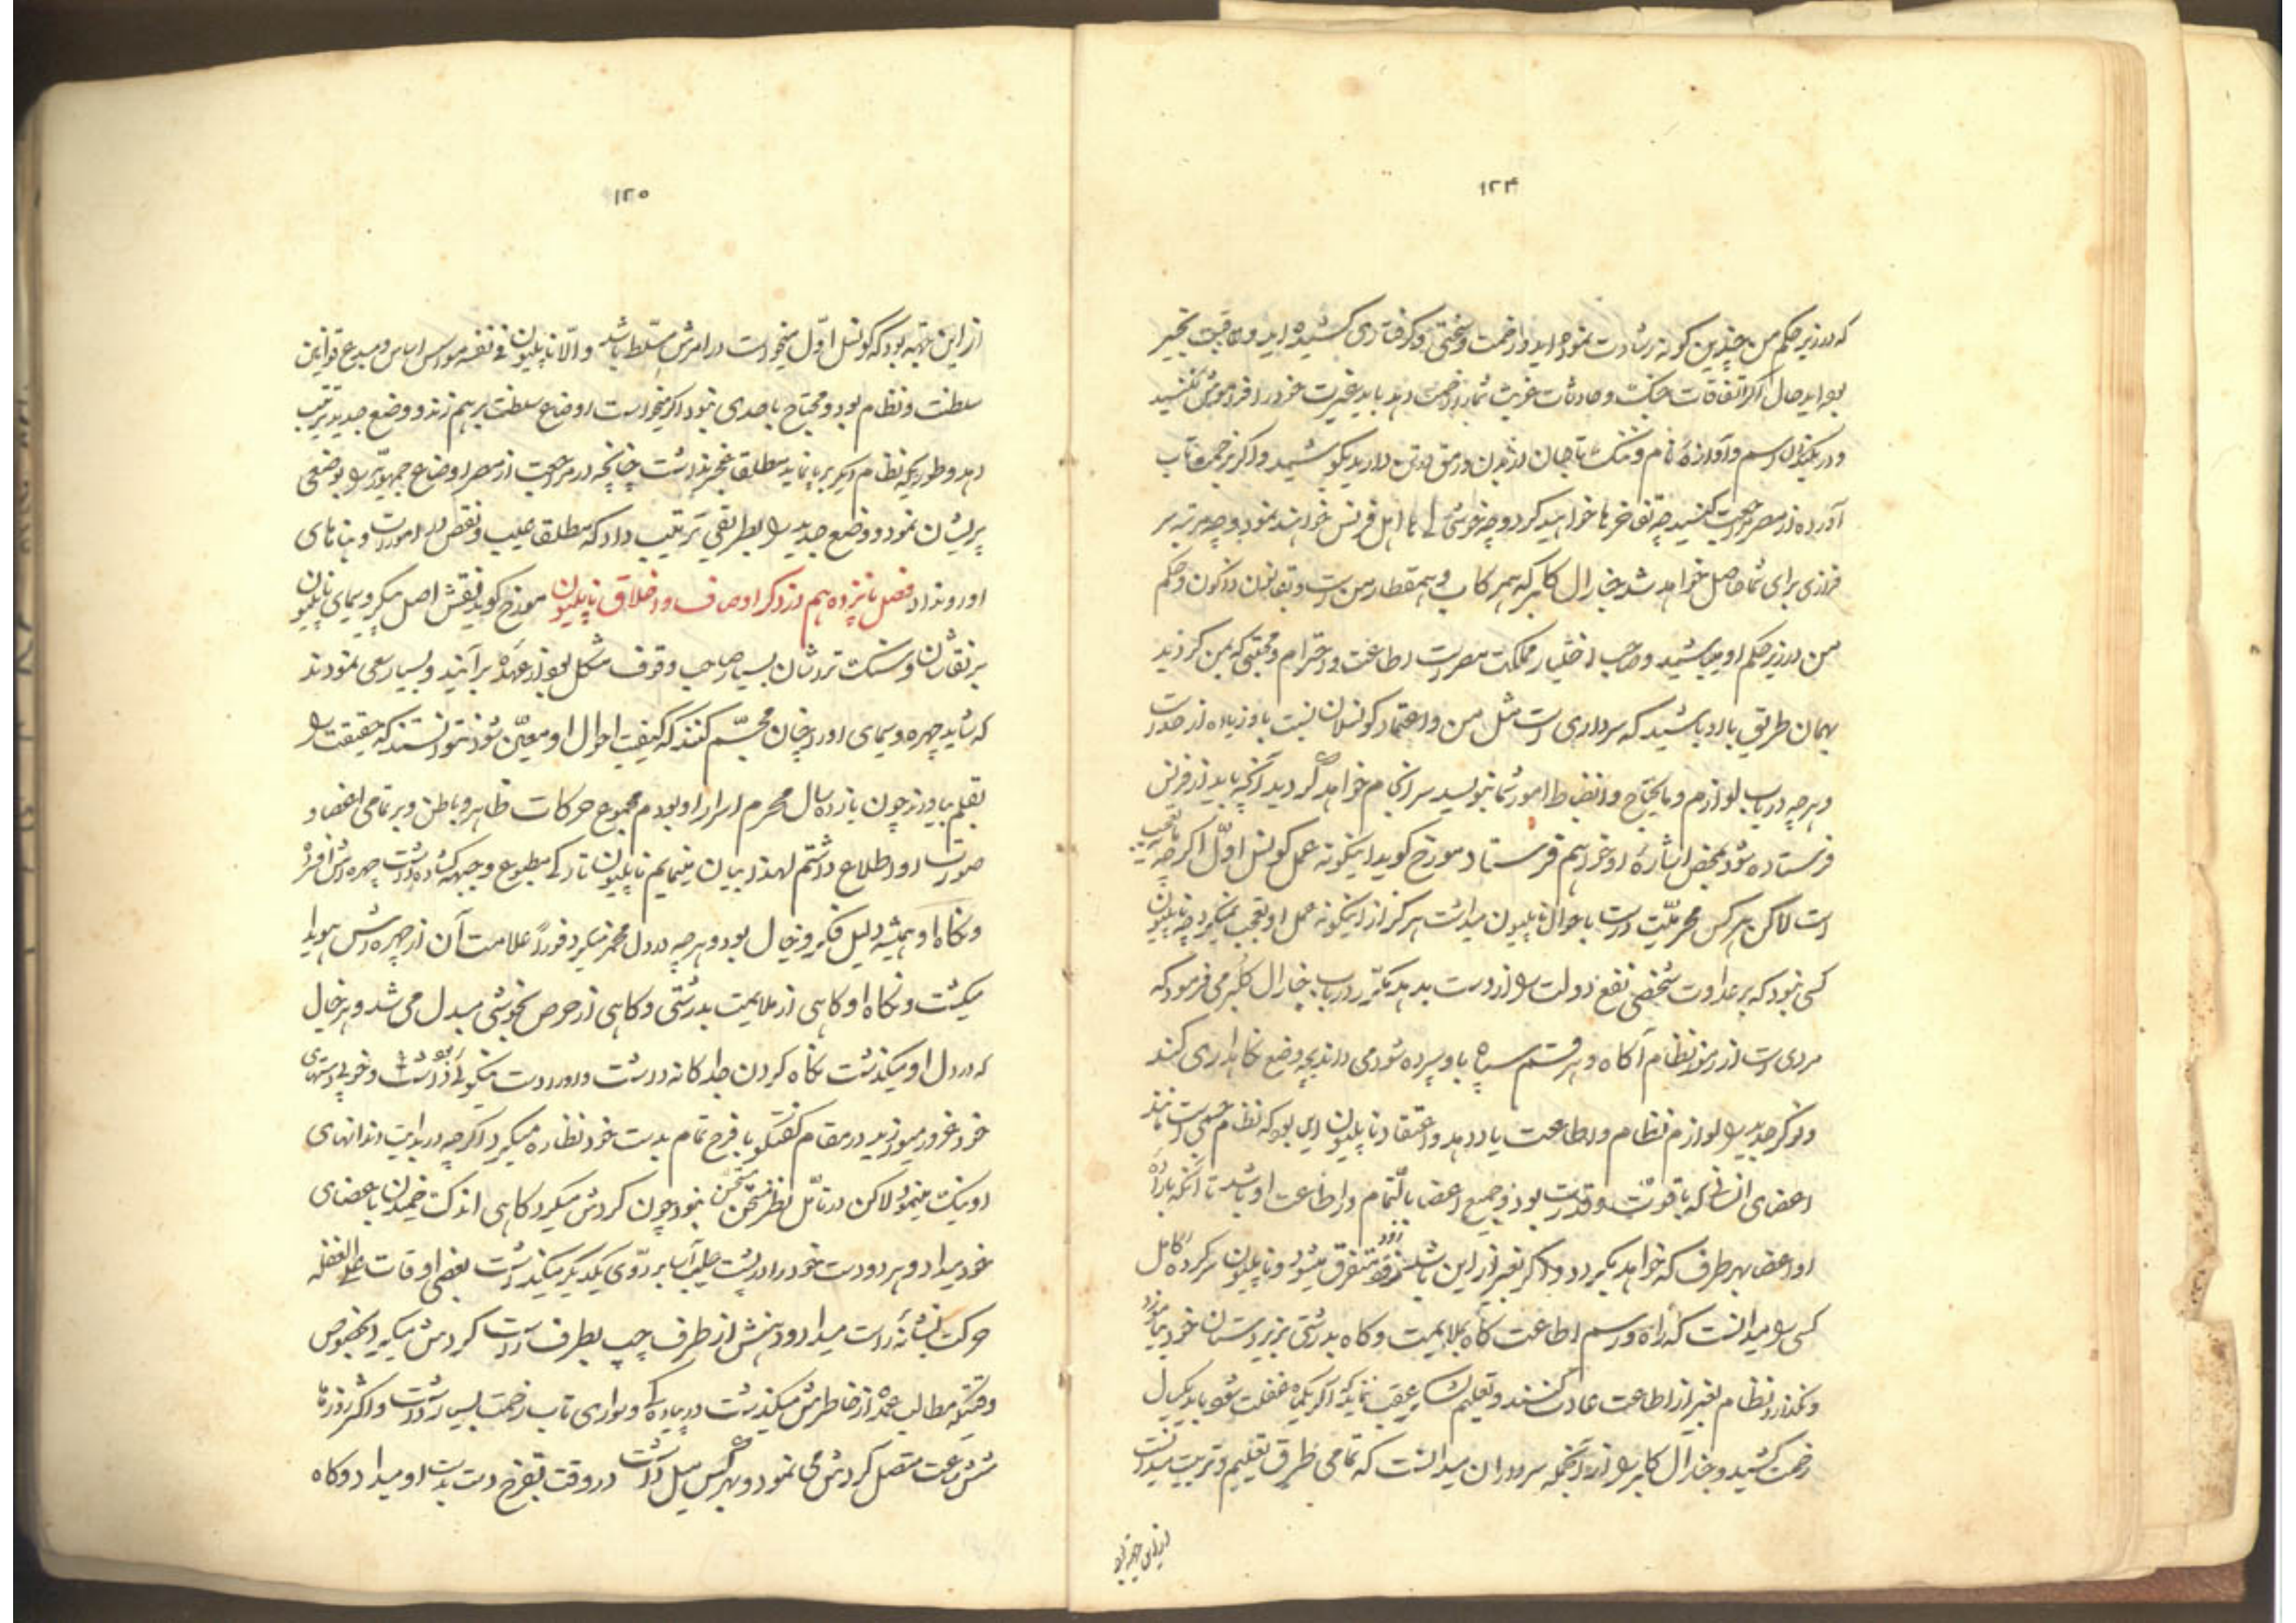 ۱۲۴
که در زیر حکم من چندین کونه رشادت نموده اید و زحمت و سختی و کرفتاری کشیده اید و عاقبت بخیر
بود اید حال اکر اتفاقات جنک و حادثات غربت شمارا زحمت دهد باید غیرت خود را فراموش نکنید
و در یکنوای رسم و آوازهٔ نام و ننک تا جان در بدن و رمق در تن دارید بکوشید و اکر زحمت تاب
آورده از مصر مراجعت کنید چه تفاخرها خواهید کرد و چه خوشی ها اهل فرنس خواهند نمود و چه مرتبه سر
فرازی برای شما حاصل خواهد شد جنارال کلبر که همرکاب و همقطار من است و بقانون و حکم
من در زیر حکم او میباشید و صاحب اختیار مملکت مصر است اطاعت و احترام و محبتی که بمن کردید
بهمان طریق با او باشید که سرداری است مثل من و اعتماد کونسلان نسبت باو زیاده از حد است
و هرچه در باب لوازم و مایحتاج و انضباط امور شما بنویسد سرانجام خواهد کردید آنچه باید از فرنس
فرستاده شود بمحض اشارهٔ او خواهم فرستاد مورخ کوید اینکونه عمل کونسل اوّل اکر چه با تعجب
است لاکن هر کس محرمیّت درست باحوال ناپلیون میداشت هرکز از اینکونه عمل او تعجب نمیکرد چه ناپلیون
کسی نبود که بر عداوت شخصی نفع دولت را از دست بدهد مکرّر در باب جنارال کلبر می فرمود که
مردی است از رمز نظام آکاه و هر قسم سپاه باو سپرده شود می داند بچه وضع نکاهداری کند
و نوکر جدید را لوازم نظام و اطاعت یاد دهد و اعتقاد ناپلیون این بود که نظام چنین است مانند
اعضای انسانی که با قوت و قدرت بود و جمیع اعضا بالتمام در اطاعت او باشد تا آنکه بارادهٔ
او اعضا بهر طرف که خواهد بکردد و اکر بغیر از این باشد زود متفرق میشود و ناپلیون سرکرده کامل
کسی را میدانست که راه و رسم اطاعت کاه بملایمت و کاه بدرشتی بزیر دستان خود بیاموزد
و نکذارد نظام بغیر از اطاعت عادت کنند و تعلیم لشکر عقب نماند که اکر یکماه غفلت شود باید یکسال
زحمت کشید و جنارال کلبر را از آنجمله سرداران میدانست که تمامی طریق تعلیم و تربیت میدانست
از این جهة بود
۱۲۵
از این جهة بود که کونسل اوّل میخواست در امرش مسلّط باشد والا ناپلیون فی نفسه موسس اساس و مبدع قوانین
سلطنت و نظام بود و محتاج باحدی نبود اکر میخواست اوضاع سلطنت برهم زند و وضع جدید ترتیب
دهد و طوریکه نظام دیکر برپا نماید مطلقا عجز نداشت چنانچه در مراجعت از مصر اوضاع جمهوری را بوضعی
پریشان نمود و وضع جدید را بطریقی ترتیب داد که مطلقا عیب و نقص در امورات و بناهای
او رو نداد فصل پانزدهم در ذکر اوصاف و اخلاق ناپلیون مورخ کوید نقش اصل پیکر و سیمای ناپلیون
بر نقاشان و سنک تراشان بسیار صاحب وقوف مشکل بود از عهده برآیند و بسیار سعی نمودند
که شاید چهره و سیمای او را چنان مجسّم کنند که کیفیت احوال او معیّن شود نتوانستند که حقیقت را
بقلم بیاورند چون یازده سال محرم اسرار او بودم بمجموع حرکات ظاهر و باطن و بر تمامی اعضا و
صورت او اطلاع داشتم لهذا بیان مینمایم ناپلیون تارک مطبوع و جبهه کشاده داشت چهره اش افسرده
و نکاه او همیشه دلیل فکر و خیال بود و هرچه در دل مخمر میکرد فوراً علامت آن از چهره اش هویدا
میکشت و نکاه او کاهی از ملایمت بدرشتی و کاهی از حرص بخوشی مبدل می شد و هر خیال
که در دل او میکذشت نکاه کردن جداکانه داشت و او را دست نیکوئی بود و بخوبی دستهای
خود غرور میورزید در مقام کفتکو با فرح تمام بدست خود نظاره میکرد اکرچه در بدایت دندانهای
او نیک مینمود لاکن در تأمّل نظر مستحسن نبود چون کردش میکرد کاهی اندک خمیدن باعضای
خود میداد و هر دو دست خود را در پشت صلب بر روی یکدیکر میکذاشت بعضی اوقات علی الغفله
حرکت بشانهٔ راست میداد و دهنش از طرف چپ بطرف راست کردش میکرد بخصوص
وقتیکه مطالب عمده از خاطرش میکذشت در پیاده کی و سواری تاب زحمت بسیار داشت و اکثر روزها
شش ساعت متصل کردش می نمود و بهر کس میل داشت در وقت تفرج دست بدست او میداد و کاه